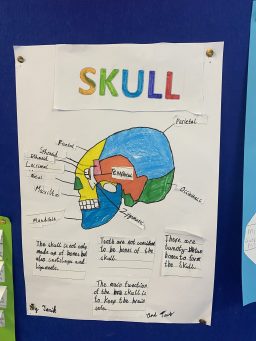 SKULL
Parietal
Frontal
Sphenoid
ethmoid
Lacrimal
Nasal
Temporal
Maxilla
Occipital
Mandible
Zygomatic
The skull is not only
made up of bones but
also cartilage and
ligaments.
Teeth are not considered
to be bones of the
skull.
There are
twenty-
bones to form
the skull.
The main function
of the skull is
to keep the brain
safe.
By
and